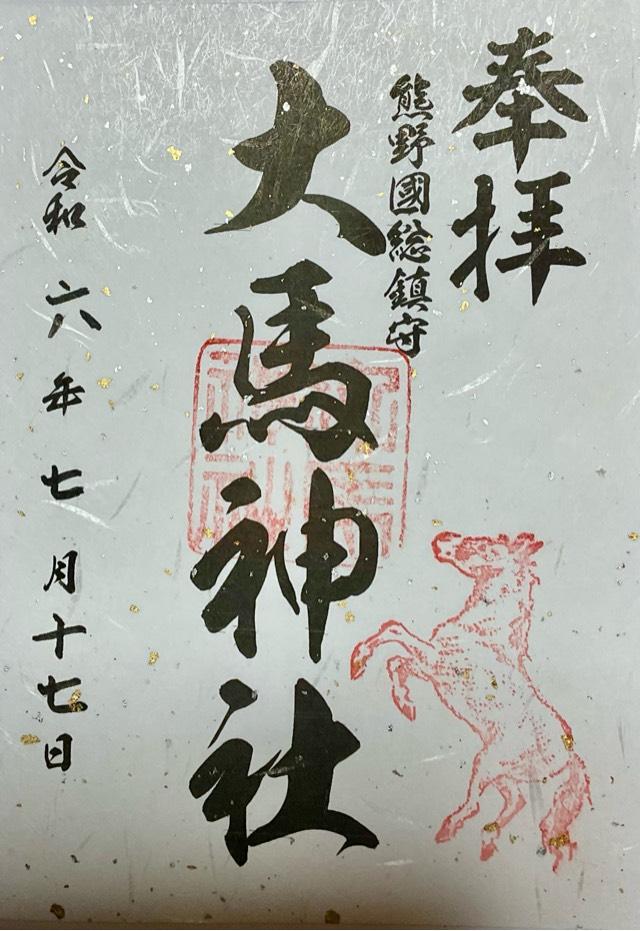 奉拝
熊野國総鎮守
大馬神社
令和六年七月十七日